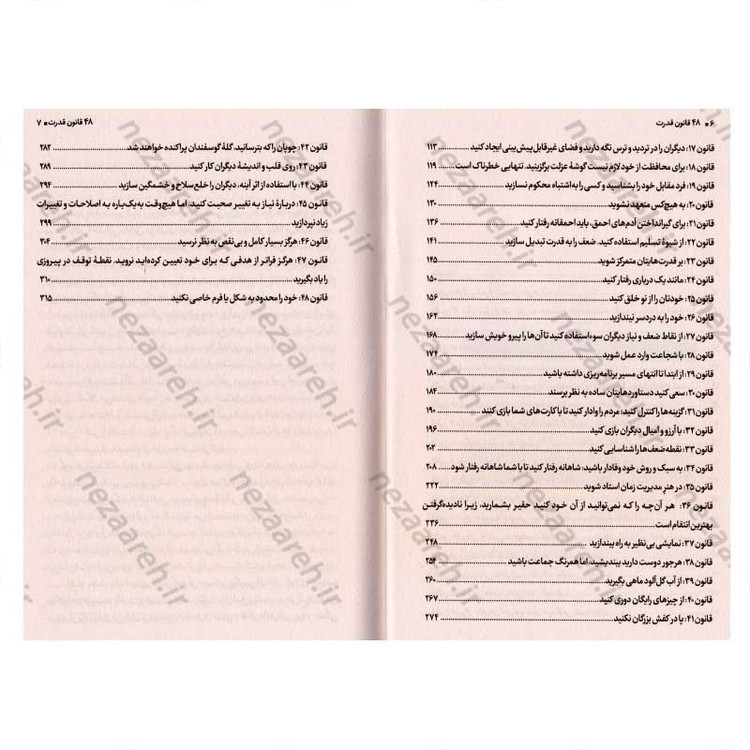 ۶ ■ ۴۸ قانون قدرت
قانون ۱۷: دیگران را در تردید و ترس نگه دارید و فضای غیرقابل پیش‌بینی ایجاد کنید ... ۱۱۳
قانون ۱۸: برای محافظت از خود لازم نیست گوشهٔ عزلت برگزینید. تنهایی خطرناک است ... ۱۱۹
قانون ۱۹: فرد مقابل خود را بشناسید و کسی را به‌اشتباه محکوم نسازید ... ۱۲۴
قانون ۲۰: به هیچ‌کس متعهد نشوید ... ۱۳۰
قانون ۲۱: برای گیرانداختن آدم‌های احمق، باید احمقانه رفتار کنید ... ۱۳۶
قانون ۲۲: از شیوهٔ تسلیم استفاده کنید. ضعف را به قدرت تبدیل سازید ... ۱۴۱
قانون ۲۳: بر قدرت‌هایتان متمرکز شوید ... ۱۴۵
قانون ۲۴: مانند یک درباری رفتار کنید ... ۱۵۰
قانون ۲۵: خودتان را از نو خلق کنید ... ۱۵۶
قانون ۲۶: خود را به دردسر نیندازید ... ۱۶۲
قانون ۲۷: از نقاط ضعف و نیاز دیگران سوءاستفاده کنید تا آن‌ها را پیرو خویش سازید ... ۱۶۸
قانون ۲۸: با شجاعت وارد عمل شوید ... ۱۷۴
قانون ۲۹: از ابتدا تا انتهای مسیر برنامه‌ریزی داشته باشید ... ۱۸۰
قانون ۳۰: سعی کنید دستاوردهایتان ساده به نظر برسند ... ۱۸۴
قانون ۳۱: گزینه‌ها را کنترل کنید: مردم را وادار کنید تا با کارت‌های شما بازی کنند ... ۱۹۰
قانون ۳۲: با آرزو و امیال دیگران بازی کنید ... ۱۹۶
قانون ۳۳: نقطه‌ضعف‌ها را شناسایی کنید ... ۲۰۲
قانون ۳۴: به سبک و روش خود وفادار باشید: شاهانه رفتار کنید تا با شما شاهانه رفتار شود ... ۲۰۸
قانون ۳۵: در هنرِ مدیریت زمان استاد شوید ... ۲۲۲
قانون ۳۶: هر آن‌چه را که نمی‌توانید از آن خود کنید حقیر بشمارید، زیرا نادیده‌گرفتن
بهترین انتقام است ... ۲۳۶
قانون ۳۷: نمایشی بی‌نظیر به راه بیندازید ... ۲۴۸
قانون ۳۸: هرجور دوست دارید بیندیشید، اما همرنگ جماعت باشید ... ۲۵۴
قانون ۳۹: از آب گل‌آلود ماهی بگیرید ... ۲۶۰
قانون ۴۰: از چیزهای رایگان دوری کنید ... ۲۶۷
قانون ۴۱: پا در کفش بزرگان نکنید ... ۲۷۴
۴۸ قانون قدرت ■ ۷
قانون ۴۲: چوپان را که بترسانید، گلهٔ گوسفندان پراکنده خواهند شد ... ۲۸۲
قانون ۴۳: روی قلب و اندیشهٔ دیگران کار کنید ... ۲۸۹
قانون ۴۴: با استفاده از اثر آینه، دیگران را خلع‌سلاح و خشمگین سازید ... ۲۹۴
قانون ۴۵: دربارهٔ نیاز به تغییر صحبت کنید، اما هیچ‌وقت به‌یک‌باره به اصلاحات و تغییرات
زیاد نپردازید ... ۲۹۹
قانون ۴۶: هرگز بسیار کامل و بی‌نقص به نظر نرسید ... ۳۰۴
قانون ۴۷: هرگز فراتر از هدفی که برای خود تعیین کرده‌اید نروید. نقطهٔ توقف در پیروزی
را یاد بگیرید ... ۳۱۰
قانون ۴۸: خود را محدود به شکل یا فرم خاصی نکنید ... ۳۱۵
nezaareh.ir
nezaareh.ir
nezaareh.ir
nezaareh.ir
nezaareh.ir
nezaareh.ir
nezaareh.ir